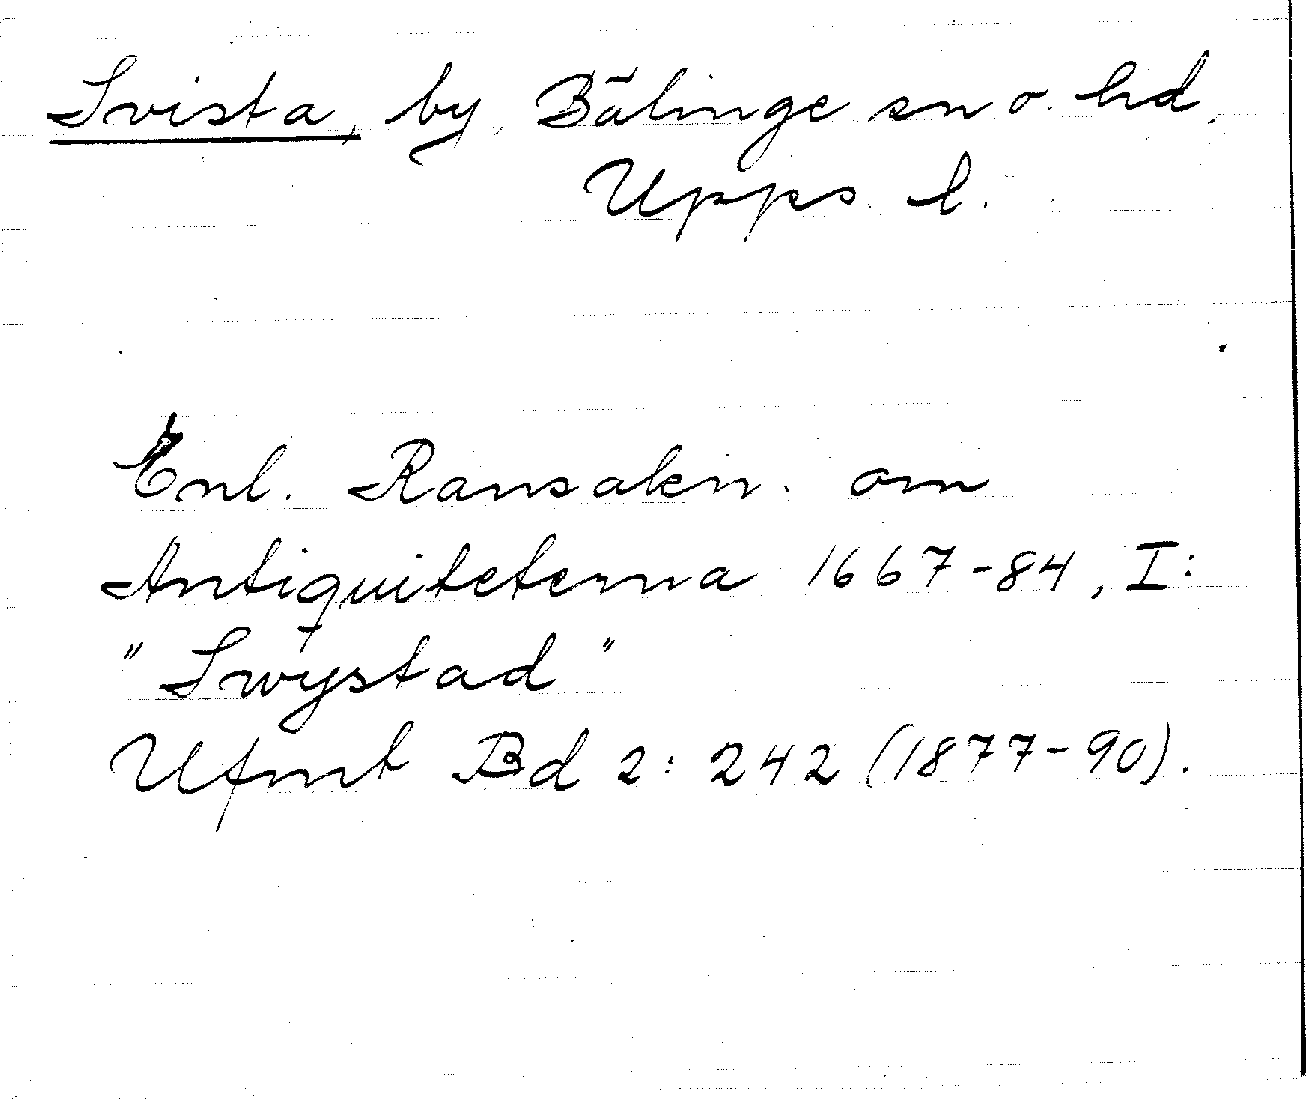 Svista, by, Bälinge sn o. hd,
Upps. l.
Enl. Ransakn. om
Antiquiteterna 1667-84, I:
"Swÿstad"
Ufmt Bd 2: 242 (1877-90).